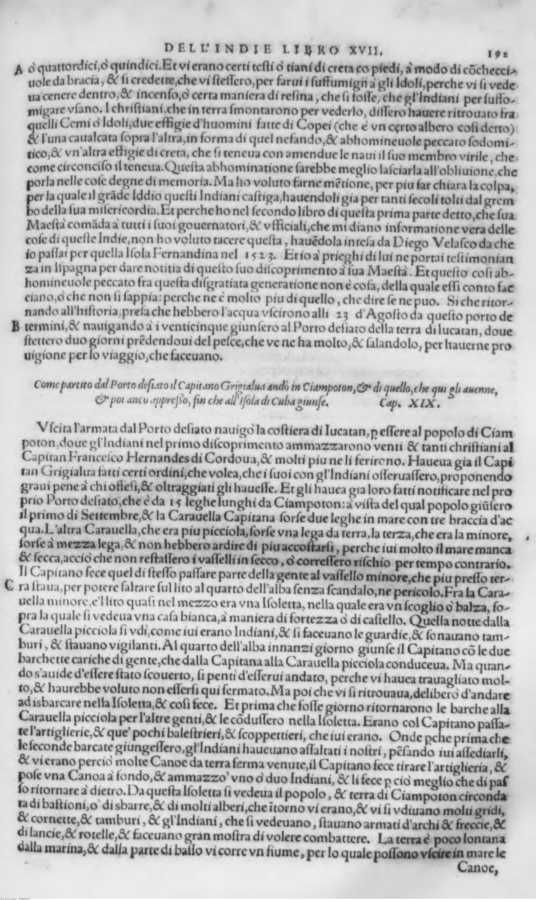 DELL'INDIE LIBRO XVII. 192
A ò quattordici, ò quindici. Et vi erano certi testi ò tiani di creta co piedi, à modo di cõchecci-
uole da bracia, & si credette, che vi stessero, per farui i suffumigi à gl'Idoli, perche vi si vede
ua cenere dentro, & incenso, ò certa maniera di resina, che si fosse, che gl'Indiani per suffo-
migare vsano. I christiani, che in terra smontarono per vederlo, dissero hauere ritrouato fra
quelli Cemi ò Idoli, due effigie d'huomini fatte di Copei (che è vn certo albero cosi detto)
& l'una caualcata sopra l'altra, in forma di quel nefando, & abhomineuole peccato sodomi-
tico, & vn'altra effigie di creta, che si teneua con amendue le naui il suo membro virile, che
come circonciso il teneua. Questa abhominatione sarebbe meglio lasciarla all'obliuione, che
porla nelle cose degne di memoria. Ma ho voluto farne mẽtione, per piu far chiara la colpa,
per la quale il grãde Iddio questi Indiani castiga, hauendoli gia per tanti secoli tolti dal grem
bo della sua misericordia. Et perche ho nel secondo libro di questa prima parte detto, che sua
Maestà comãda à tutti i suoi gouernatori, & vfficiali, che mi diano informatione vera delle
cose di queste Indie, non ho voluto tacere questa, hauẽdola intesa da Diego Velasco da che
io passai per quella Isola Fernandina nel 1523. Et io à prieghi di lui ne portai testimonian
za in Ispagna per dare notitia di questo suo discoprimento à sua Maestà. Et questo cosi ab-
homineuole peccato fra questa disgratiata generatione non è cosa, della quale essi conto fac
ciano, ò che non si sappia: perche ne è molto piu di quello, che dire se ne puo. Si che ritor-
nando all'historia, presa che hebbero l'acqua vscirono alli 23 d'Agosto da questo porto de
B termini, & nauigando à i venticinque giunsero al Porto desiato della terra di Iucatan, doue
stettero duo giorni prẽdendoui del pesce, che ve ne ha molto, & salandolo, per hauerne pro
uigione per lo viaggio, che faceuano.
Come partito dal Porto desiato il Capitano Grigialua andò in Ciampoton, & di quello, che qui gli auenne,
& poi anco appresso, fin che all'Isola di Cuba giunse. Cap. XIX.
Vscita l'armata dal Porto desiato nauigò la costiera di Iucatan, p essere al popolo di Ciam
poton, doue gl'Indiani nel primo discoprimento ammazzarono venti & tanti christiani al
Capitan Francesco Hernandes di Cordoua, & molti piu ne li ferirono. Haueua gia il Capi
tan Grigialua fatti certi ordini, che volea, che i suoi con gl'Indiani osseruassero, proponendo
graui pene à chi offesi, & oltraggiati gli hauesse. Et gli hauea gia loro fatti notificare nel pro
prio Porto desiato, che è da 15 leghe lunghi da Ciampoton: à vista del qual popolo giũsero
il primo di Settembre, & la Carauella Capitana sorse due leghe in mare con tre braccia d'ac
qua. L'altra Carauella, che era piu picciola, sorse vna lega da terra, la terza, che era la minore,
sorse à mezza lega, & non hebbero ardire di piu accostarsi, perche iui molto il mare manca
& secca, acciò che non restassero i vasselli in secco, ò corressero rischio per tempo contrario.
Il Capitano fece quel di stesso passare parte della gente al vassello minore, che piu presso ter-
C ra staua, per potere saltare sul lito al quarto dell'alba senza scandalo, ne pericolo. Fra la Cara-
uella minore, e'l lito quasi nel mezzo era vna Isoletta, nella quale era vn scoglio ò balza, so-
pra la quale si vedeua vna casa bianca, à maniera di fortezza ò di castello. Quella notte dalla
Carauella picciola si vdì, come iui erano Indiani, & si faceuano le guardie, & sonauano tam-
buri, & stauano vigilanti. Al quarto dell'alba innanzi giorno giunse il Capitano cõ le due
barchette cariche di gente, che dalla Capitana alla Carauella picciola conduceua. Ma quan-
do s'auide d'essere stato scouerto, si pentì d'esserui andato, perche vi hauea trauagliato mol-
to, & haurebbe voluto non essersi qui fermato. Ma poi che vi si ritrouaua, deliberò d'andare
ad isbarcare nella Isoletta, & cosi fece. Et prima che fosse giorno ritornarono le barche alla
Carauella picciola per l'altre genti, & le cõdussero nella Isoletta. Erano col Capitano passa-
te l'artiglierie, & que' pochi balestrieri, & scoppettieri, che iui erano. Onde pche prima che
le seconde barcate giungessero, gl'Indiani haueuano assaltati i nostri, pẽsando iui assediarli,
& vi erano perciò molte Canoe da terra ferma venute, il Capitano fece tirare l'artigliería, &
pose vna Canoa à fondo, & ammazzo' vno ò duo Indiani, & li fece p ciò meglio che di pas
so ritornare à dietro. Da questa Isoletta si vedeua il popolo, & terra di Ciampoton circonda
ta di bastioni, o' di sbarre, & di molti alberi, che ĩtorno vi erano, & vi si vdiuano molti gridi,
& cornette, & tamburi, & gl'Indiani, che si vedeuano, stauano armati d'archi & freccie, &
di lancie, & rotelle, & faceuano gran mostra di volere combattere. La terra è poco lontana
dalla marina, & dalla parte di basso vi corre vn fiume, per lo quale possono vscire in mare le
Canoe,